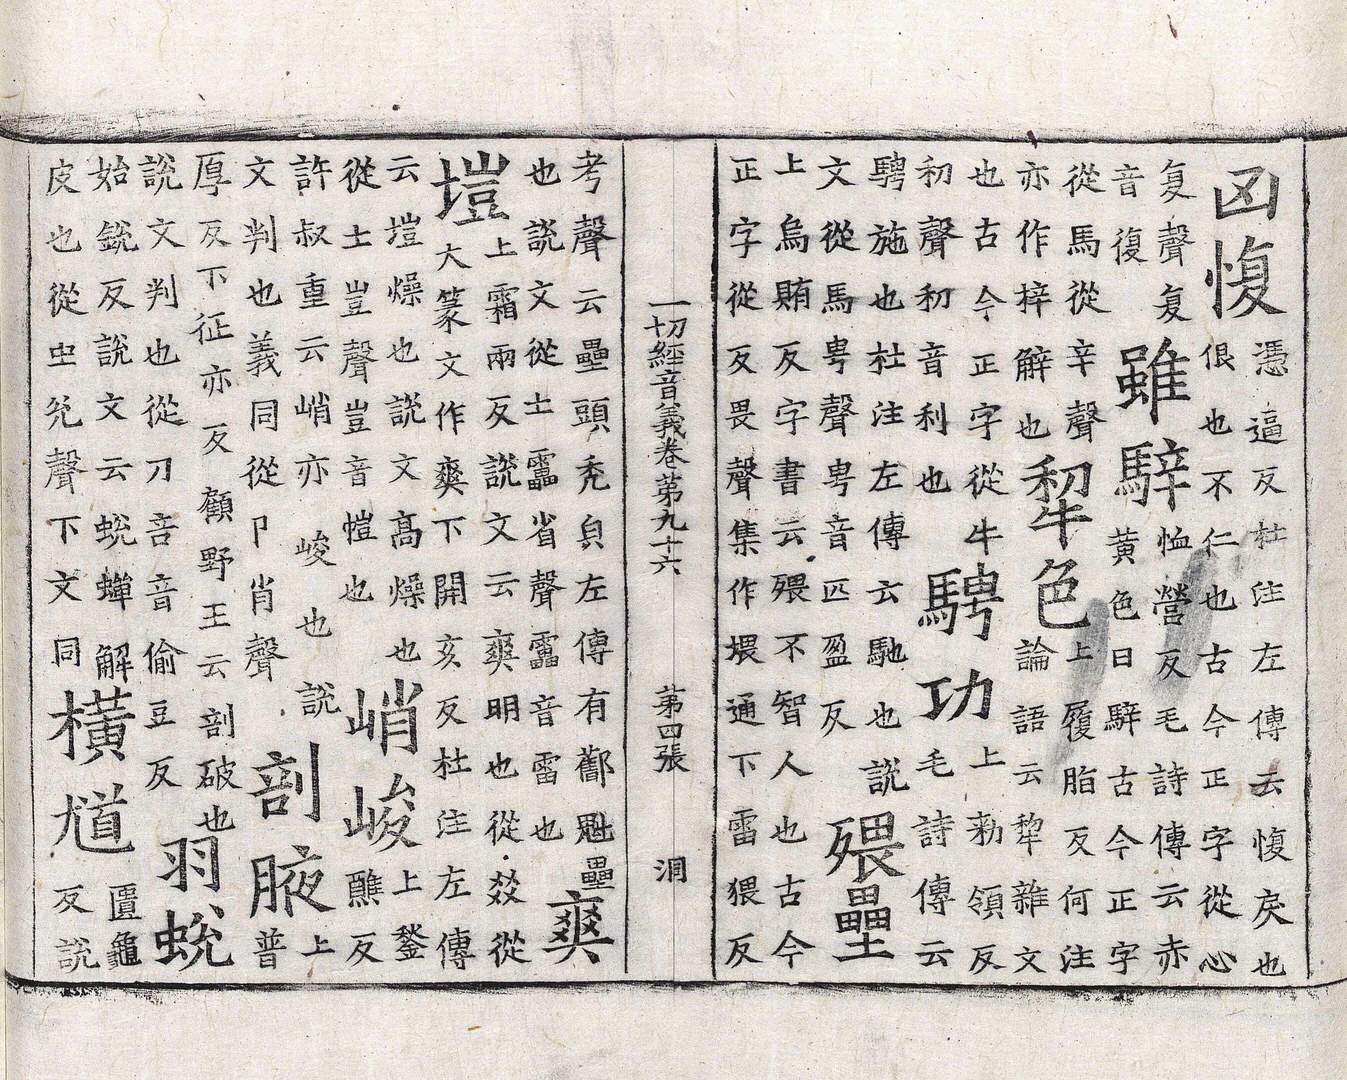 凶愎
憑逼反杜注左傳云愎戾也
佷也不仁也古今正字從心
复聲复
音復
雖騂
恤營反毛詩傳云赤
黃色曰騂古今正字
從馬從辛聲
亦作梓解也
犂色
上履脂反何注
論語云犂雜文
也古今正字從牛
初聲初音利也
騁功
上勑領反
毛詩傳云
騁施也杜注左傳云馳也說
文從馬甹聲甹音匹盈反
猥壘
上烏賄反字書云猥不智人也古今
正字從反畏聲集作㙗通下雷猥反
一切經音義卷第九十六　第四張　洞
考聲云壘頭禿負左傳有酇魁壘
也說文從土畾省聲畾音雷也
爽
塏
上霜兩反說文云爽明也從㸚從
大篆文作爽下開亥反杜注左傳
云塏燥也說文高燥也
從土豈聲豈音愷也
峭峻
上鍫
醮反
許叔重云峭亦峻也說
文判也義同從卩肖聲
剖腋
上
普
厚反下征亦反顧野王云剖破也
說文判也從刀咅音偷豆反
羽蛻
始銳反說文云蛻蟬解
皮也從虫兊聲下文同
橫尵
匱龜
反說